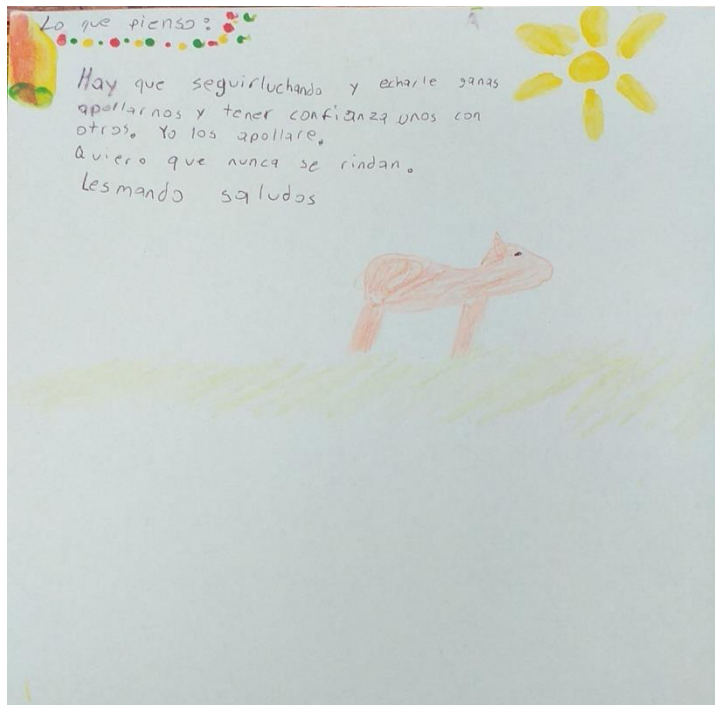 Lo que pienso:
Hay que seguirluchando y echarle ganas
apollarnos y tener confianza unos con
otros. Yo los apollare.
Quiero que nunca se rindan.
Lesmando saludos